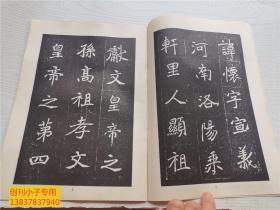 諱懷字宣義
河南洛陽乗
軒里人顯祖
獻文皇帝之
孫高祖孝文
皇帝之第四
创刊小子专用
13837837940